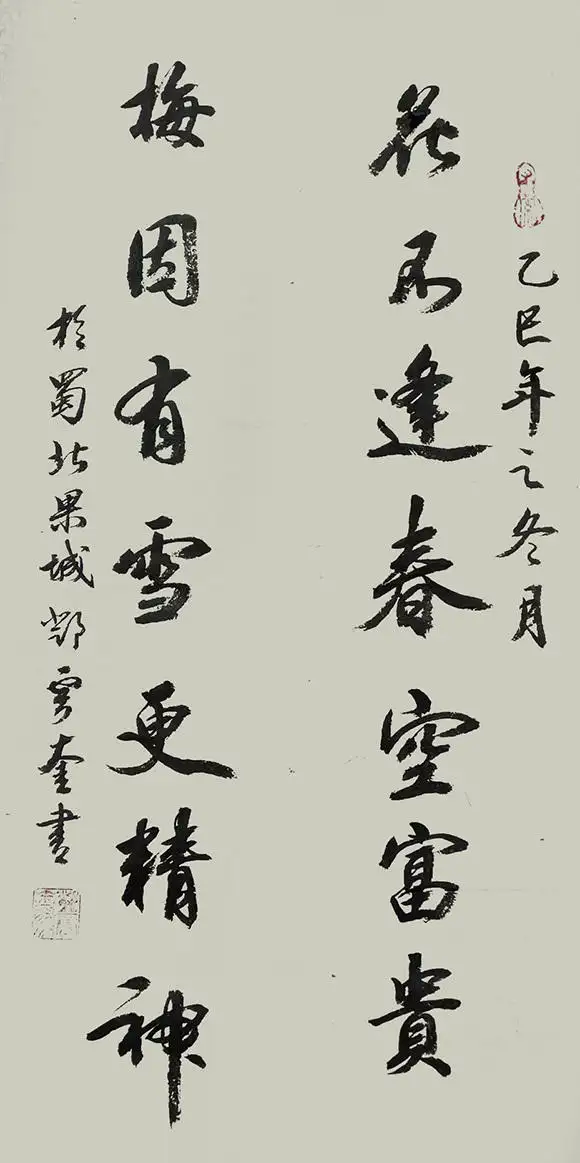 乙巳年之冬月
花不逢春空富貴
梅因有雪更精神
於蜀北果城鄧雲奎書